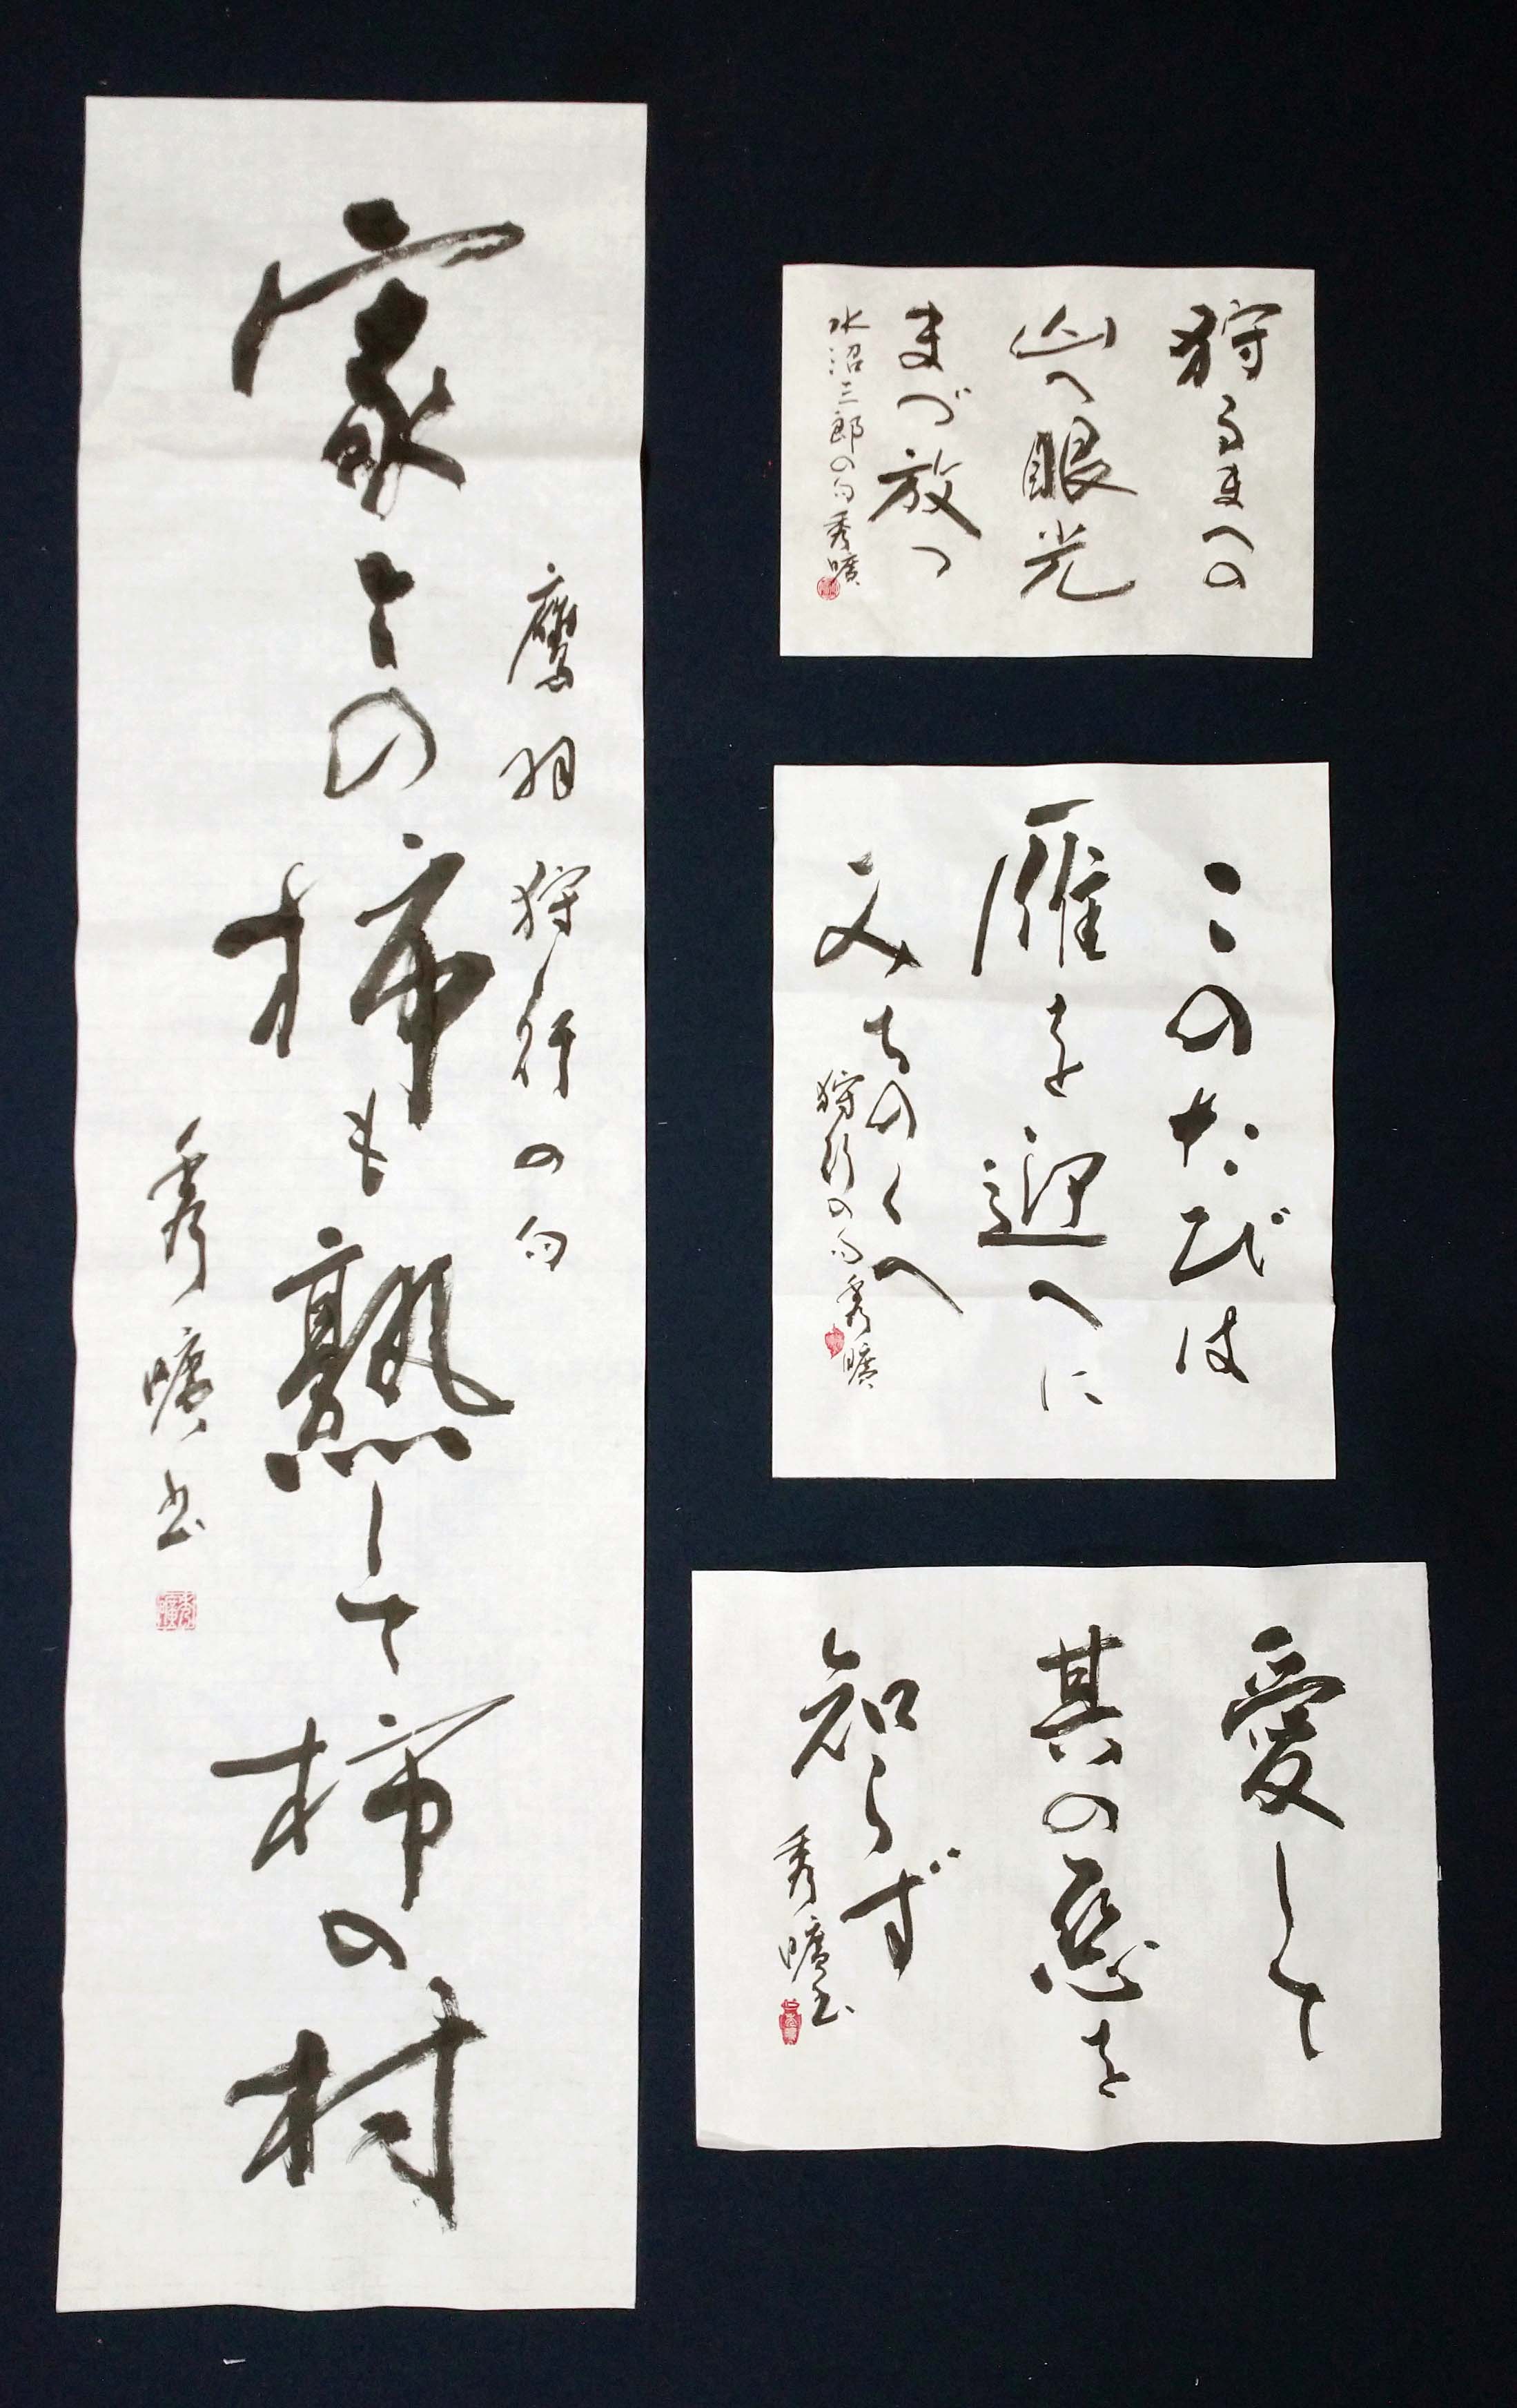 鷹羽狩行の句
家々の柿も熟して柿の村
秀曠書
狩るまへの
山へ眼光
まづ放つ
水沼三郎の句 秀曠
このたびは
雁を迎へに
みちのくへ
狩行の句 秀曠
愛して
其の悪を
知らず
秀曠書